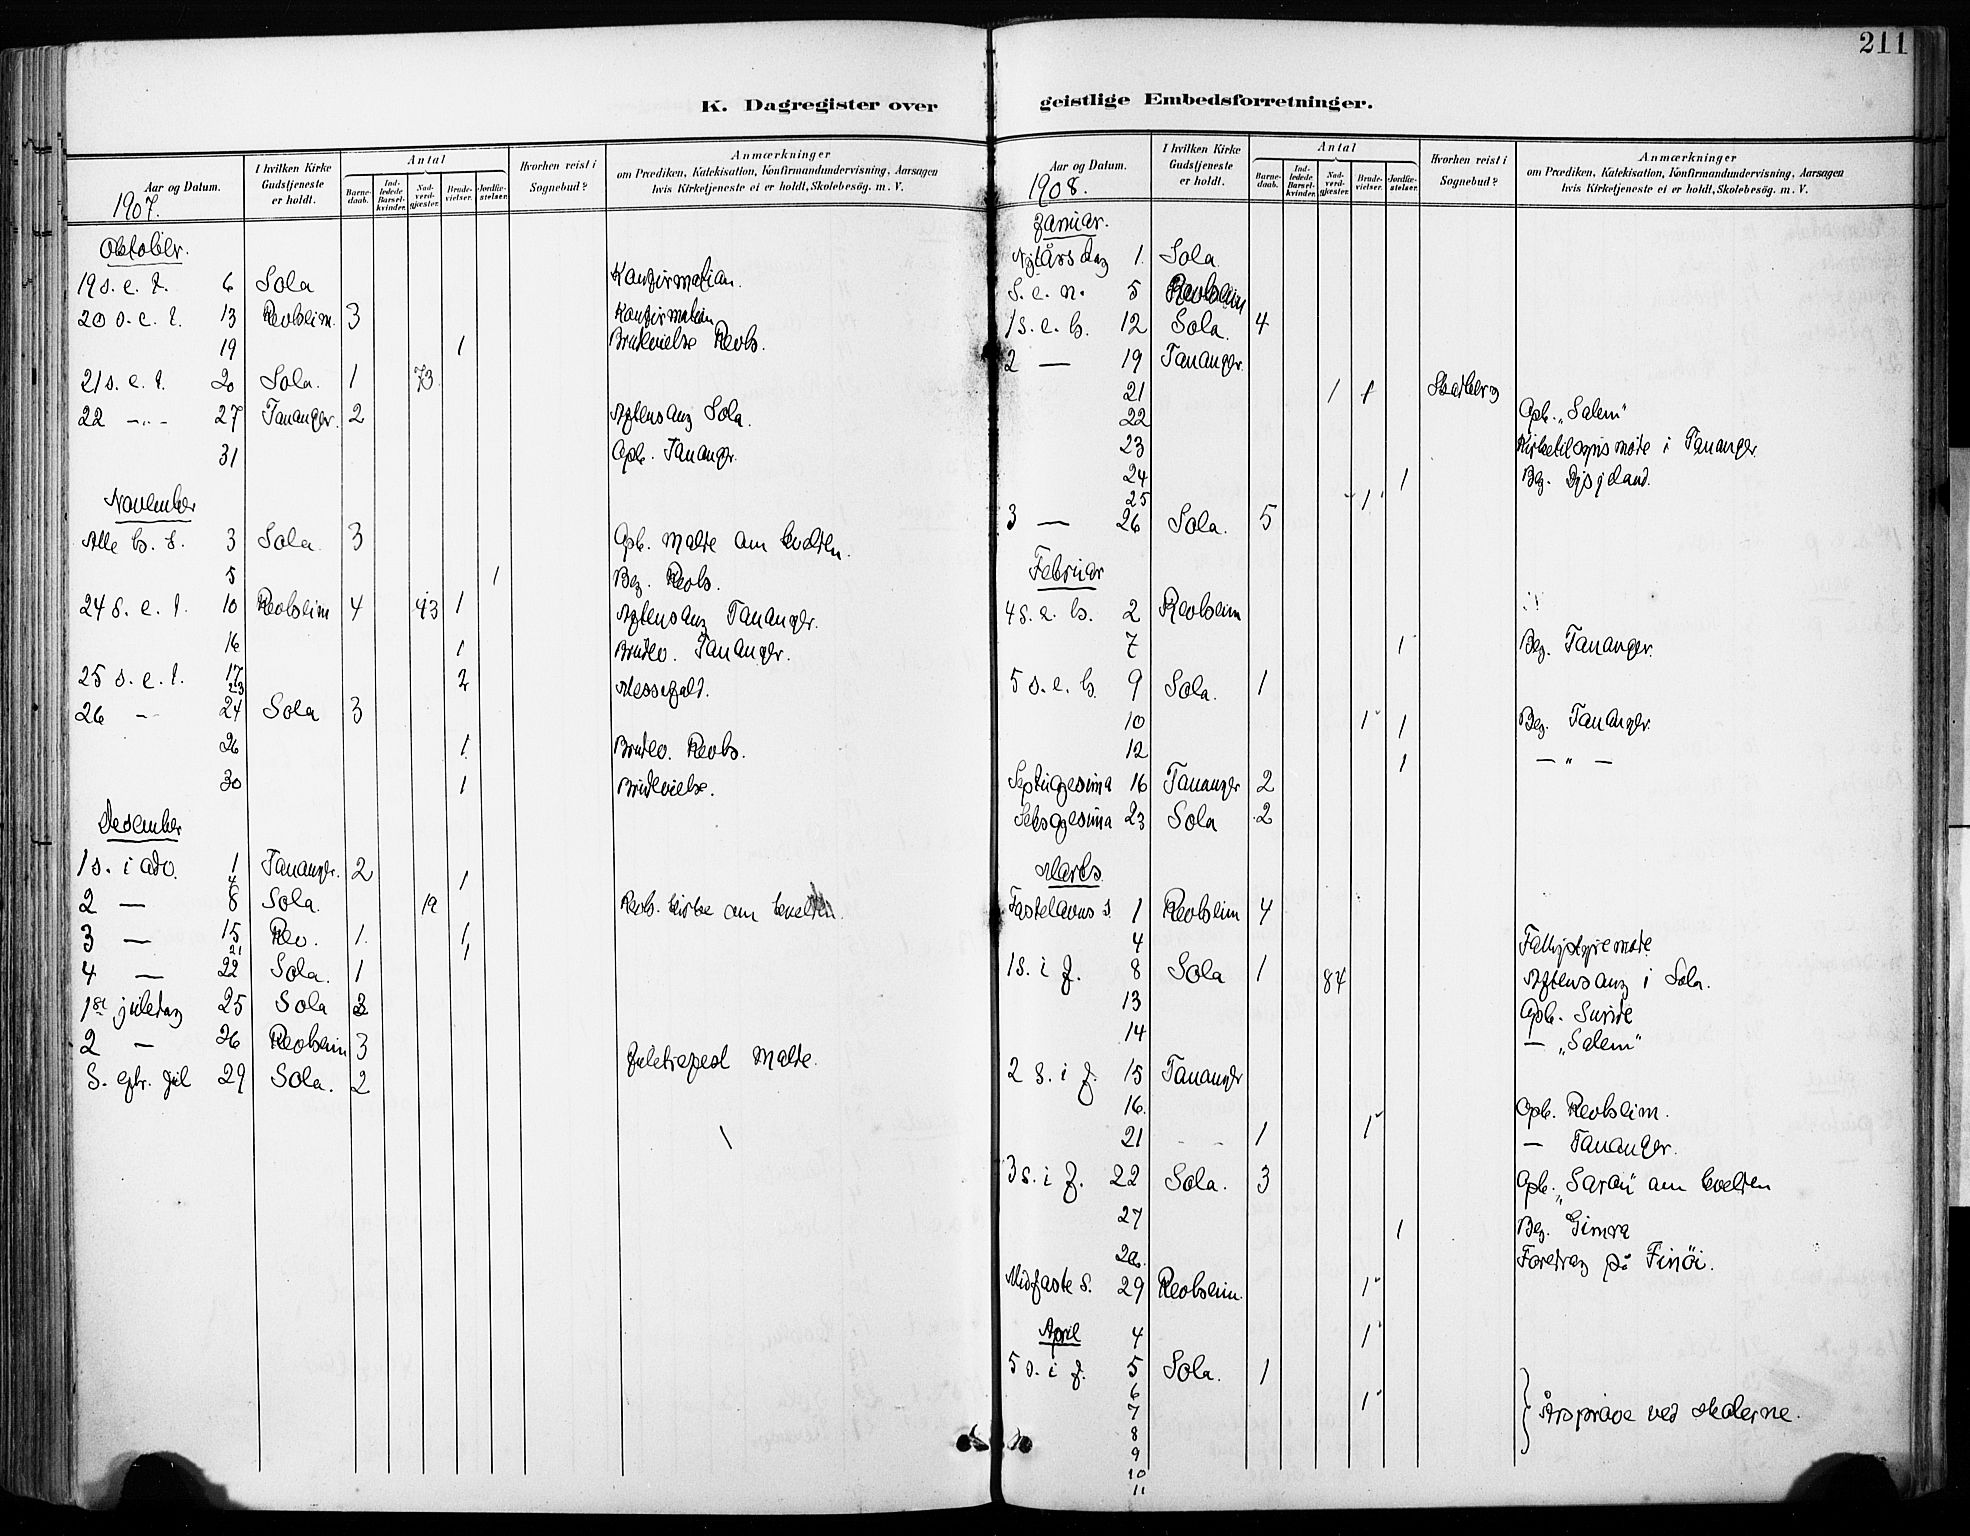 211
K. Dagregister over geistlige Embedsforretninger.
Aar og Datum. I hvilken Kirke Gudstjeneste er holdt. Antal Barnedaab. Indledede Barselkvinder. Nadverdgjæster. Brudevielser. Jordfæstelser. Hvorhen reist i Sognebud? Anmærkninger om Prædiken, Katekisation, Konfirmandundervisning, Aarsagen hvis Kirketjeneste ei er holdt, Skolebesög. m. V.
1907.
Oktober.
19 s. e. t. 6 Sola Konfirmation.
20 s. e. t. 13 Revheim. 3 Konfirmation
19 1 Brudevielse Revh.
21 s. e. t. 20 Sola. 1 73
22 -"- 27 Tananger. 2 Aftensang Sola.
31 Opb. Tananger.
November
Alle h. d. 3 Sola. 3 Opb. Malde om kvelden.
5 1 Beg. Revh.
24 s. e. t. 10 Revheim 4 43 1 Aftensang Tananger.
16 1 Brudev. Tananger.
25 s. e. t. 17 Messefald.
23 2
26 - 24 Sola 3
26 1. Brudev. Revh.
30 1 Brudevielse.
Desember
1 s. i adv. 1 Tananger. 2
4 1
2 — 8 Sola. 19 Revh. kirke om kvelden.
3 — 15 Rev. 1. 1
21 1
4 — 22 Sola. 1
1st juledag 25 Sola
2 — 26 Revheim 3
Juletrefest Malde.
S. eftr. jul 29 Sola. 2
Aar og Datum. I hvilken Kirke Gudstjeneste er holdt. Antal Barnedaab. Indledede Barselkvinder. Nadverdgjæster. Brudevielser. Jordfæstelser. Hvorhen reist i Sognebud? Anmærkninger om Prædiken, Katekisation, Konfirmandundervisning, Aarsagen hvis Kirketjeneste ei er holdt, Skolebesög. m. V.
1908.
Januar.
Nytårsdag 1. Sola.
S. e. n. 5 Revheim
1 s. e. h. 12 Sola. 4
2 — 19 Tananger.
21 1 1
22 Opb. „Salem"
23 Kirketilsynsmøte i Tananger.
24 1 Beg.
25 1
3 — 26 Sola. 5
Februar
4 s. e. h. 2 Revheim
7 1 Beg. Tananger.
5 s. e. h. 9 Sola. 1
10 1 1 Beg. Tananger.
12 1 — " —
Septuagesima 16 Tananger 2
Seksagesima 23 Sola 2
Marts.
Fastelavns s. 1 Revheim 4
4
1 s. i f. 8 Sola 1 84 Aftensang i Sola.
13 Opb. Sunde
14 — „Salem"
2 s. i f. 15 Tananger
16. Opb. Revheim.
21 1 1 — Tananger.
3 s. i f. 22 Sola. 3 Opb. om kvelden
27 1 Beg. Gimra
28. Foredrag på Finöi.
Midfaste s. 29 Revheim. 1
April 4 1
5 s. i f. 5 Sola. 1
6 1
7
8
9
10
11
Årsprøve ved skolerne.